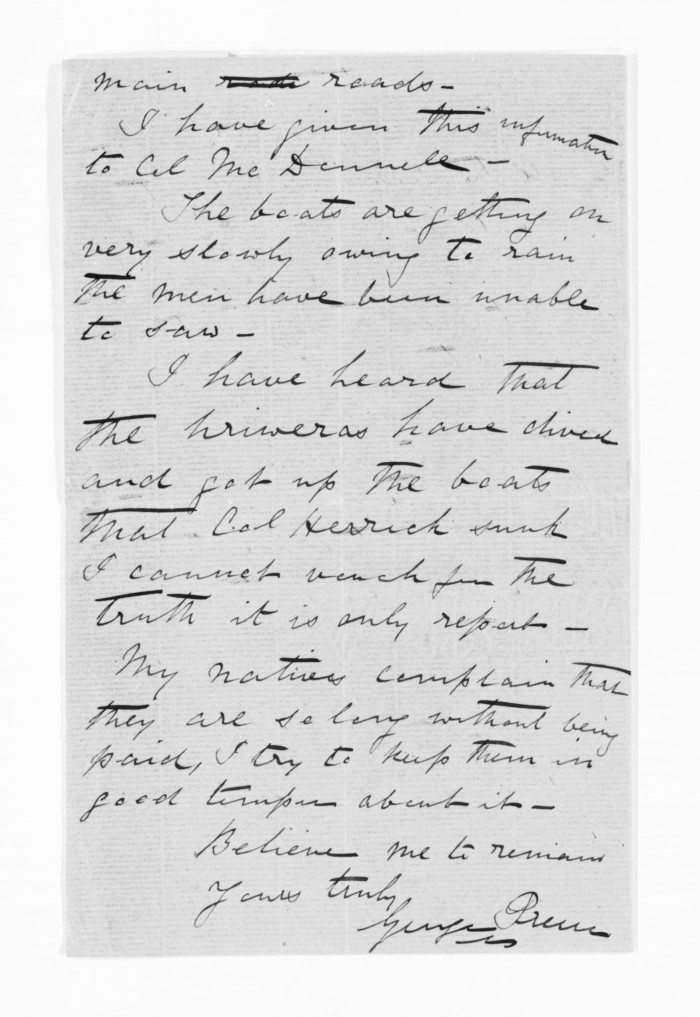 main ~~rods~~ roads -
I have given this information
to Col McDonnell -
The boats are getting on
very slowly owing to rain
the men have been unable
to saw -
I have heard that
the hriweras have dived
and got up the boats
that Col Herrick sunk
I cannot vouch for the
truth it is only report -
My natives complain that
they are so long without being
paid, I try to keep them in
good temper about it -
Believe me to remain
Yours truly
George Preece